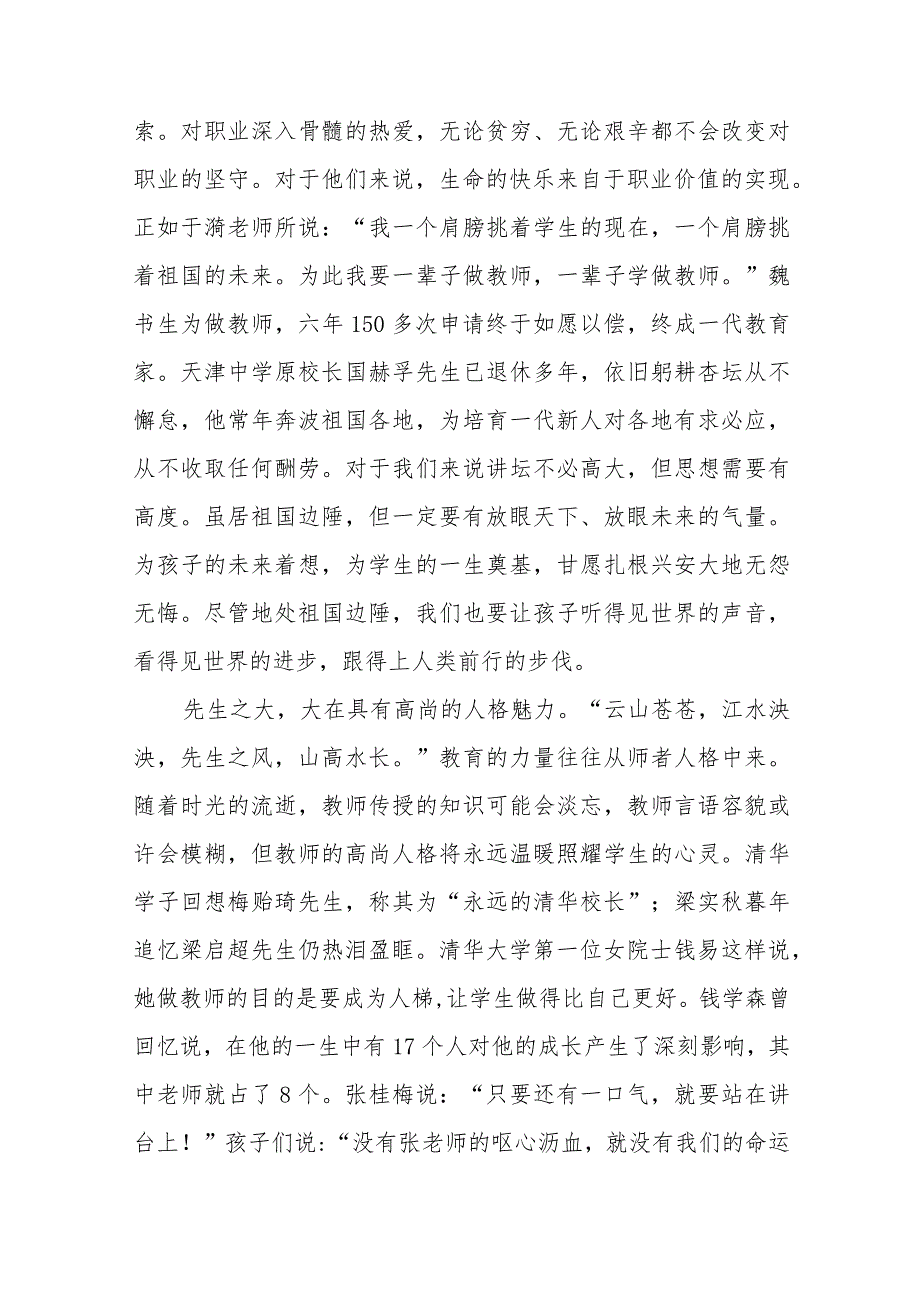 索。对职业深入骨髓的热爱，无论贫穷、无论艰辛都不会改变对
职业的坚守。对于他们来说，生命的快乐来自于职业价值的实现。
正如于漪老师所说：“我一个肩膀挑着学生的现在，一个肩膀挑
着祖国的未来。为此我要一辈子做教师，一辈子学做教师。”魏
书生为做教师，六年 150 多次申请终于如愿以偿，终成一代教育
家。天津中学原校长国赫孚先生已退休多年，依旧躬耕杏坛从不
懈怠，他常年奔波祖国各地，为培育一代新人对各地有求必应，
从不收取任何酬劳。对于我们来说讲坛不必高大，但思想需要有
高度。虽居祖国边陲，但一定要有放眼天下、放眼未来的气量。
为孩子的未来着想，为学生的一生奠基，甘愿扎根兴安大地无怨
无悔。尽管地处祖国边陲，我们也要让孩子听得见世界的声音，
看得见世界的进步，跟得上人类前行的步伐。
先生之大，大在具有高尚的人格魅力。“云山苍苍，江水泱
泱，先生之风，山高水长。”教育的力量往往从师者人格中来。
随着时光的流逝，教师传授的知识可能会淡忘，教师言语容貌或
许会模糊，但教师的高尚人格将永远温暖照耀学生的心灵。清华
学子回想梅贻琦先生，称其为“永远的清华校长”；梁实秋暮年
追忆梁启超先生仍热泪盈眶。清华大学第一位女院士钱易这样说，
她做教师的目的是要成为人梯,让学生做得比自己更好。钱学森曾
回忆说，在他的一生中有 17 个人对他的成长产生了深刻影响，其
中老师就占了 8 个。张桂梅说：“只要还有一口气，就要站在讲
台上！”孩子们说:“没有张老师的呕心沥血，就没有我们的命运